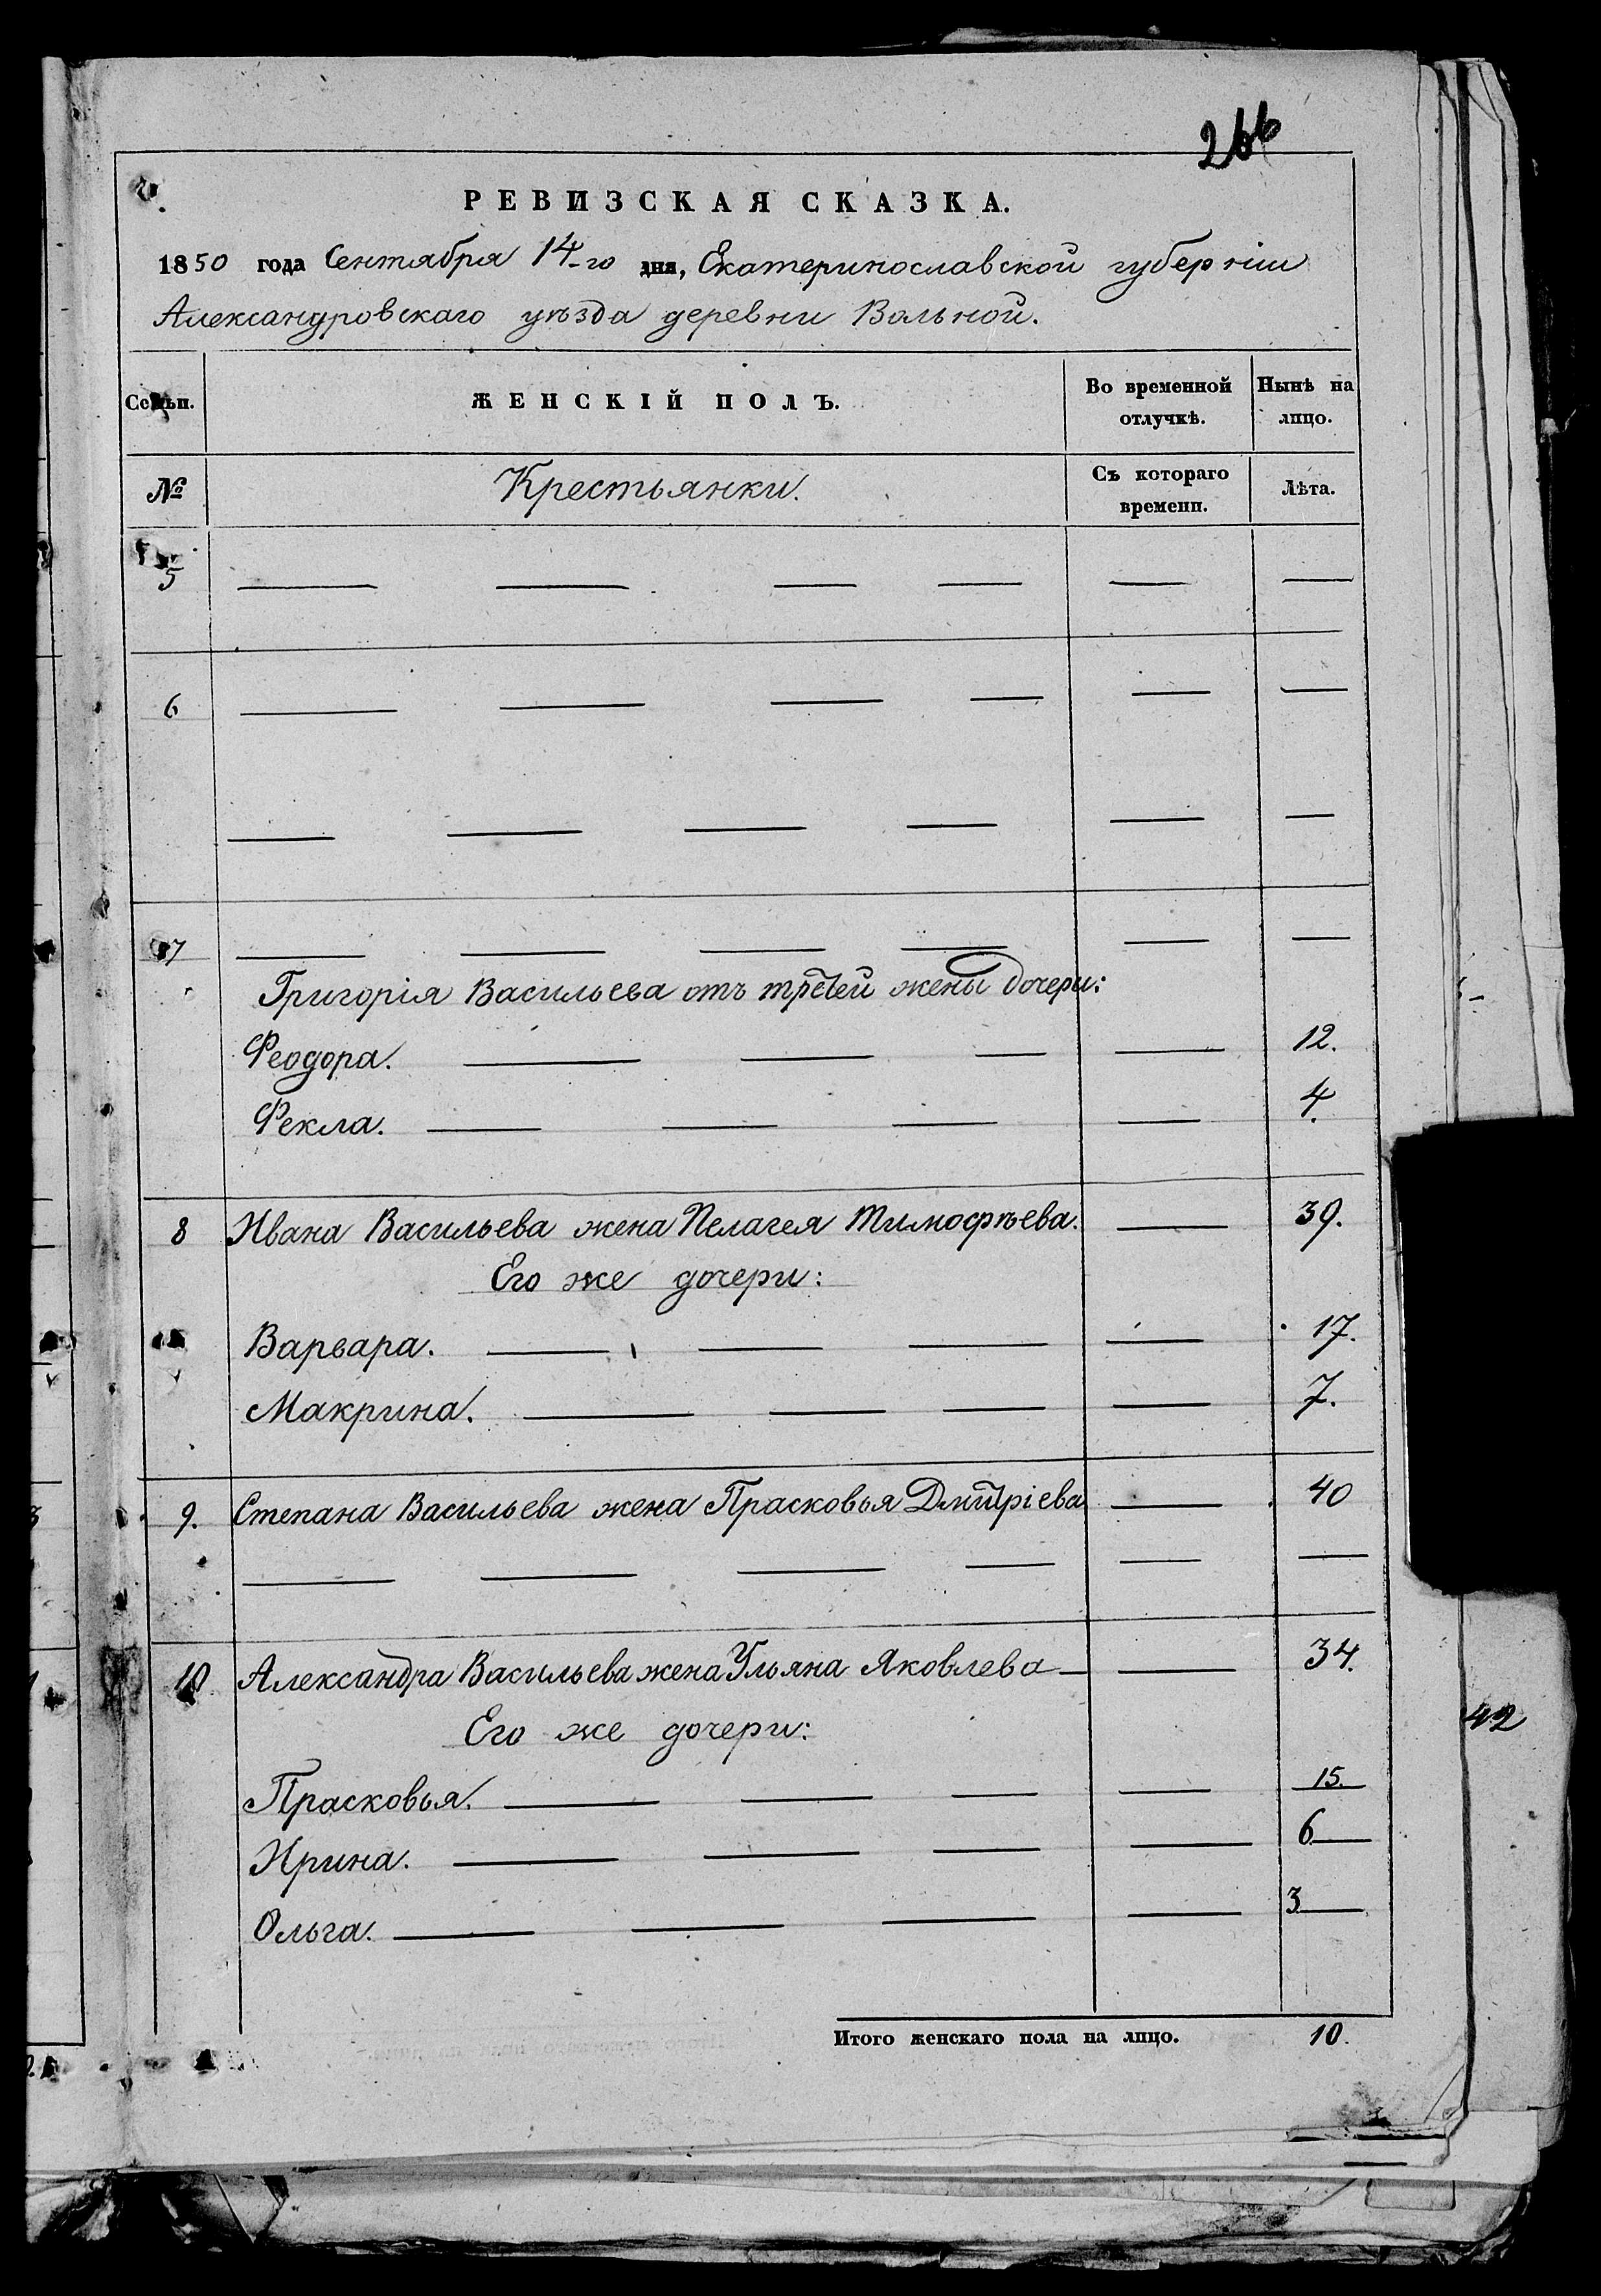 266
РЕВИЗСКАЯ СКАЗКА.
1850 года Сентября 14-го дня, Екатеринославской губерніи
Александровскаго уѣзда деревни Вольной.
Семьи. ЖЕНСКІЙ ПОЛЪ. Во временной отлучкѣ. Нынѣ на лицо.
№ Крестьянки. Съ котораго времени. Лѣта.
5
6
7
Григорія Васильева отъ третей жены дочери:
Феодора. 12.
Фекла. 4.
8 Ивана Васильева жена Пелагея Тимофѣева. 39.
Его же дочери:
Варвара. 17.
Макрина. 7.
9. Степана Васильева жена Прасковья Дмитріева 40
10 Александра Васильева жена Ульяна Яковлева 34.
Его же дочери:
Прасковья. 15.
Ирина. 6
Ольга. 3
Итого женскаго пола на лицо. 10.
42